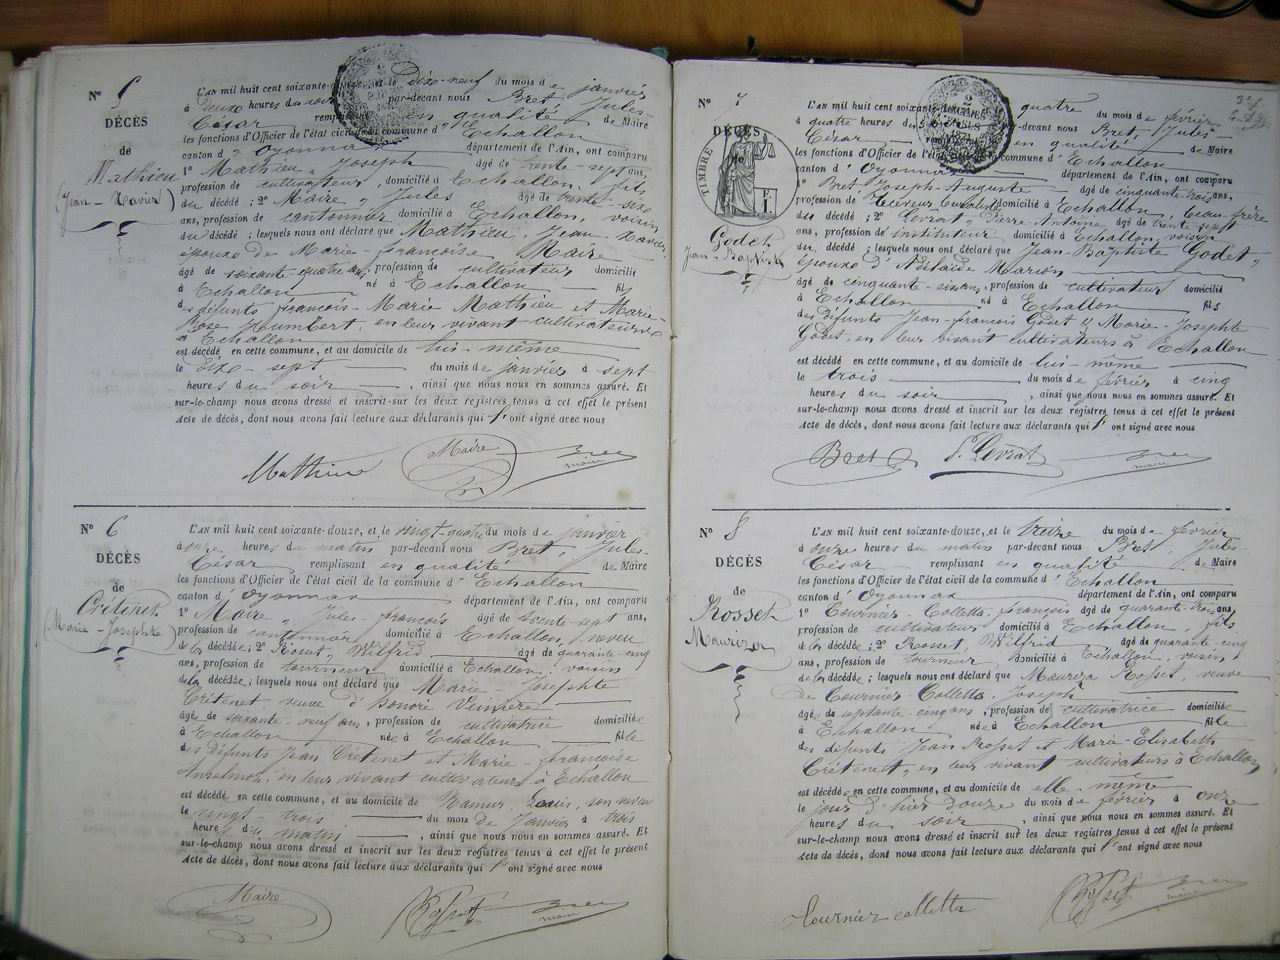 N° 5
DÉCÈS
de
Mathieu
(Jean-Xavier)
L'AN mil huit cent soixante- et le dix-neuf du mois de janvier
à deux heures du soir par-devant nous Bret, Jules-
César remplissant en qualité de Maire
les fonctions d'Officier de l'état civil de la commune d'Echallon
canton d'Oyonnax département de l'Ain, ont comparu
1° Mathieu, Joseph âgé de trente-sept ans,
profession de cultivateur, domicilié à Echallon, fils
du décédé ; 2° Maire, Jules âgé de trente-six
ans, profession de cantonnier domicilié à Echallon, voisin
du décédé ; lesquels nous ont déclaré que Mathieu, Jean-Xavier
épouse de Marie-françoise Maire
âgé de soixante-quatre ans, profession de cultivateur domicilié
à Echallon né à Echallon fil
des défunts françois-Marie Mathieu et Marie-
Rose Humbert, en leur vivant cultivateurs
à Echallon
est décédé en cette commune, et au domicile de lui-même
le dix-sept du mois de janvier à sept
heures du soir, ainsi que nous nous en sommes assuré. Et
sur-le-champ nous avons dressé et inscrit sur les deux registres tenus à cet effet le présent
acte de décès, dont nous avons fait lecture aux déclarants qui l'ont signé avec nous
Mathieu Maire Bret
maire
N° 6
DÉCÈS
de
Crétenet
(Marie-Josephte)
L'AN mil huit cent soixante-douze, et le vingt-quatre du mois de janvier
à onze heures du matin par-devant nous Bret, Jules-
César remplissant en qualité de Maire
les fonctions d'Officier de l'état civil de la commune d'Echallon
canton d'Oyonnax département de l'Ain, ont comparu
1° Maire, Jules-françois âgé de trente-sept ans,
profession de cantonnier domicilié à Echallon, neveu
de la décédée ; 2° Rosset, Wilfrid âgé de quarante-cinq
ans, profession de tourneur domicilié à Echallon, voisin
de la décédée ; lesquels nous ont déclaré que Marie-Josephte
Crétenet veuve d'honoré
âgée de soixante-neuf ans, profession de cultivatrice domiciliée
à Echallon née à Echallon fille
des défunts Jean Crétenet et Marie-françoise
en leur vivant cultivateurs à Echallon
est décédée en cette commune, et au domicile de Louis, son neveu
le vingt-trois du mois de janvier à trois
heures du matin, ainsi que nous nous en sommes assuré. Et
sur-le-champ nous avons dressé et inscrit sur les deux registres tenus à cet effet le présent
acte de décès, dont nous avons fait lecture aux déclarants qui l'ont signé avec nous
Maire Rosset Bret
maire
N° 7
DÉCÈS
TIMBRE
Godet
Jean-Baptiste
L'AN mil huit cent soixante- quatre du mois de février
à quatre heures du par-devant nous Bret, Jules-
César en qualité de Maire
les fonctions d'Officier de l'état commune d'Echallon
canton d'Oyonnax département de l'Ain, ont comparu
1° Bret Joseph-Auguste âgé de cinquante-trois ans,
profession de Receveur domicilié à Echallon, beau-frère
du décédé ; 2° Levrat, Pierre-Antoine âgé de trente-sept
ans, profession de instituteur domicilié à Echallon, voisin
du décédé ; lesquels nous ont déclaré que Jean-Baptiste Godet,
époux d'Adélaïde
âgé de cinquante-six ans, profession de cultivateur domicilié
à Echallon né à Echallon fils
des défunts Jean-françois Godet et Marie-Josephte
Godet, en leur vivant cultivateurs à Echallon
est décédé en cette commune, et au domicile de lui-même
le trois du mois de février à cinq
heures du soir, ainsi que nous nous en sommes assuré. Et
sur-le-champ nous avons dressé et inscrit sur les deux registres tenus à cet effet le présent
acte de décès, dont nous avons fait lecture aux déclarants qui l'ont signé avec nous
Bret P. Levrat Bret
maire
N° 8
DÉCÈS
de
Rosset
Mauriza
L'AN mil huit cent soixante-douze, et le treize du mois de février
à onze heures du matin par-devant nous Bret, Jules-
César remplissant en qualité de Maire
les fonctions d'Officier de l'état civil de la commune d'Echallon
canton d'Oyonnax département de l'Ain, ont comparu
1° Tournier-Colletta, françois âgé de quarante-trois ans,
profession de cultivateur domicilié à Echallon, fils
de la décédée ; 2° Rosset, Wilfrid âgé de quarante-cinq
ans, profession de tourneur domicilié à Echallon, voisin
de la décédée ; lesquels nous ont déclaré que Mauriza Rosset, veuve
de Tournier-Colletta, Joseph
âgée de septante-cinq ans, profession de cultivatrice domiciliée
à Echallon née à Echallon fille
des défunts Jean Rosset et Marie-Elisabeth
Crétenet, en leur vivant cultivateurs à Echallon,
est décédée en cette commune, et au domicile de elle-même
le jour d'hier douze du mois de février à onze
heures du soir, ainsi que nous nous en sommes assuré. Et
sur-le-champ nous avons dressé et inscrit sur les deux registres tenus à cet effet le présent
acte de décès, dont nous avons fait lecture aux déclarants qui l'ont signé avec nous
Tournier colletta Rosset Bret
maire